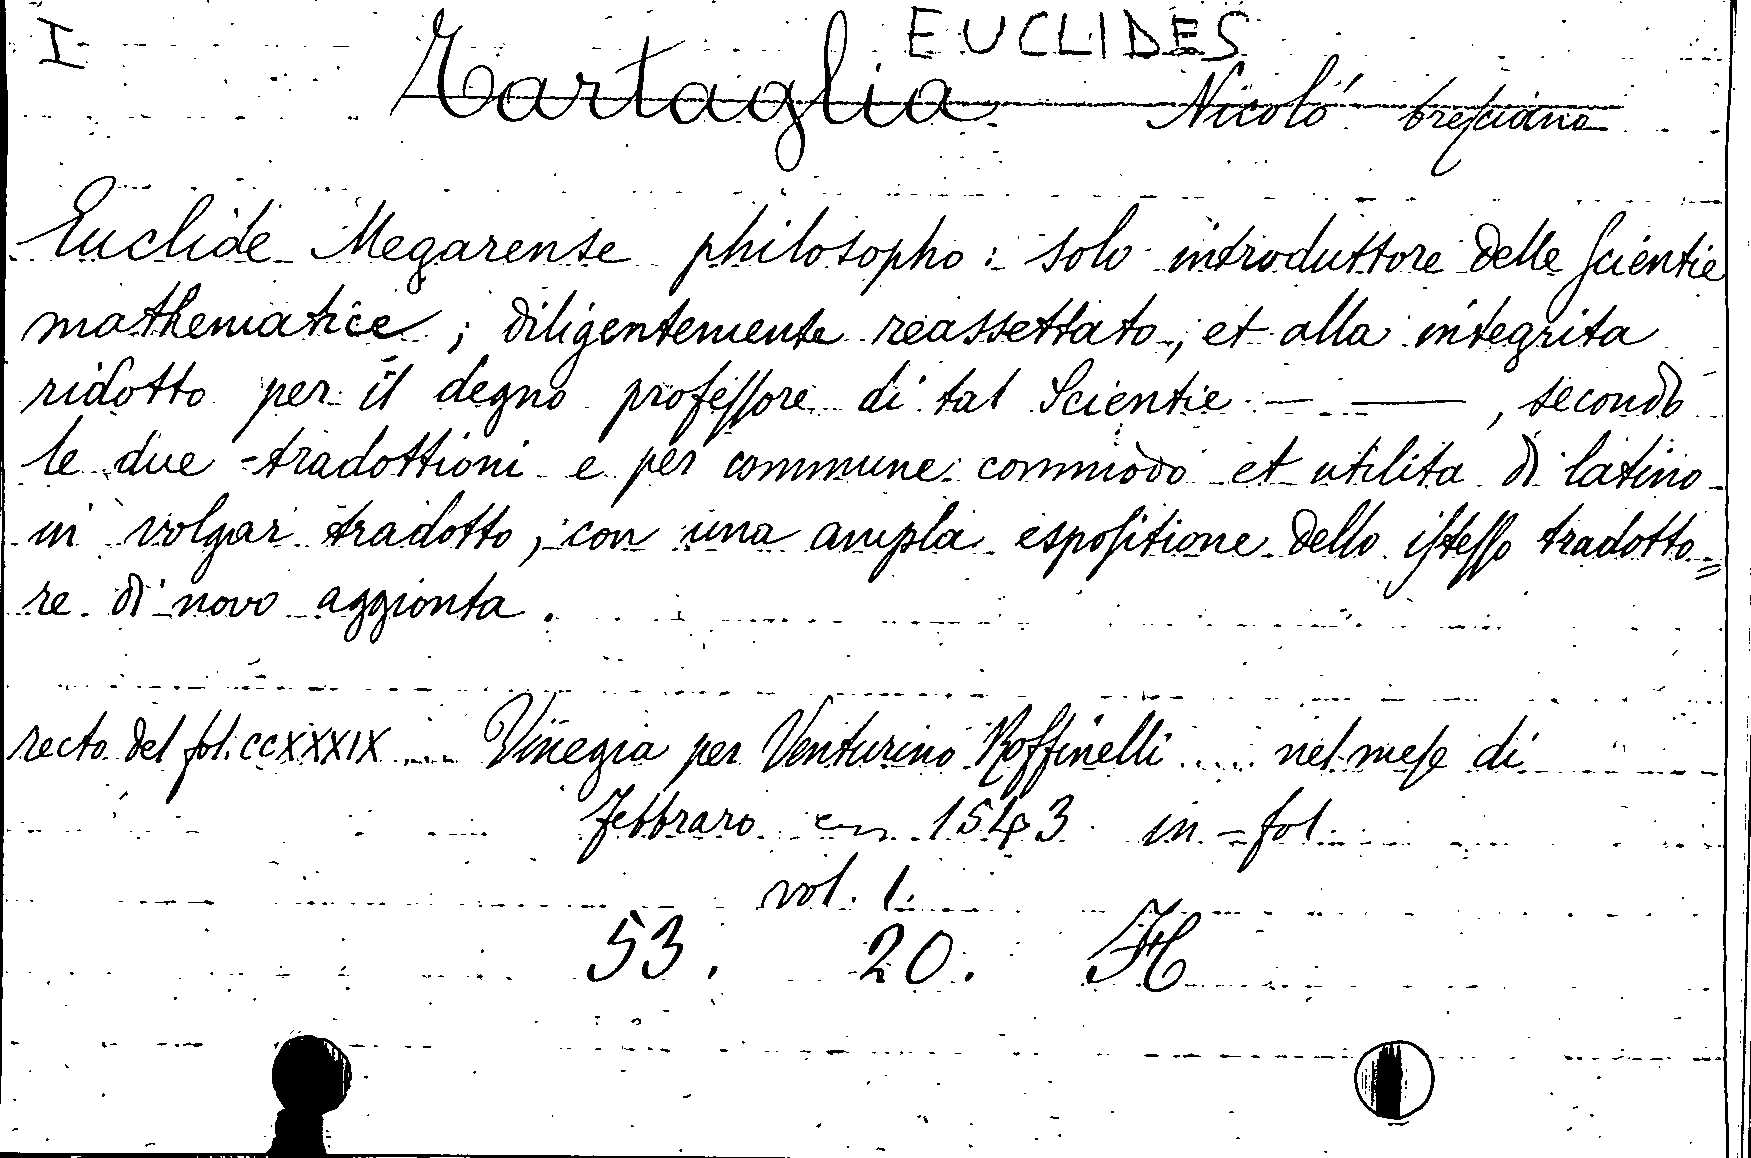 I
EUCLIDES
Tartaglia Nicoló bresciano
Euclide Megarense philosopho: solo introduttore delle scientie
mathematice; diligentemente reassettato, et alla integrita
ridotto per il degno professore di tal Scientie — ——, secondo
le due tradottioni e per commune commodo et utilita di latino
in volgar tradotto; con una ampla espositione dello istesso tradotto=
re di novo aggionta.
recto del fol. CCXXXIX .... Vinegia per Venturino Roffinelli .... nel mese di
Febbraro 1543 in-fol.
vol. 1.
53. 20. H